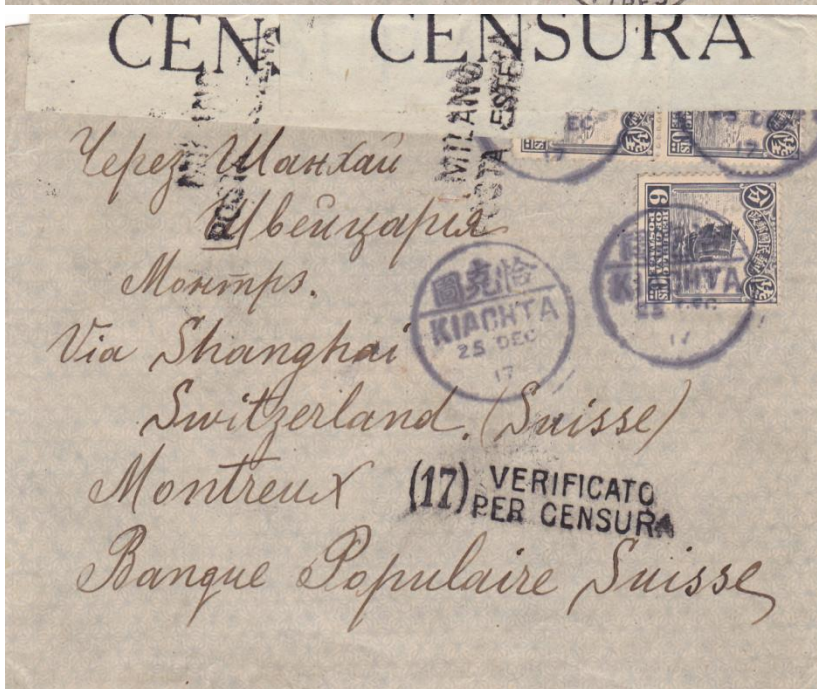 CENSURA
CENSURA
MILANO
POSTA ESTERA
Через Шанхай
Швейцарія
Montрэ.
Via Shanghai
Switzerland. (Suisse)
Montreux
Banque Populaire Suisse
恰克圖
KIACHTA
25 DEC
17
KIACHTA
25 DEC
17
6
(17) VERIFICATO
PER CENSURA